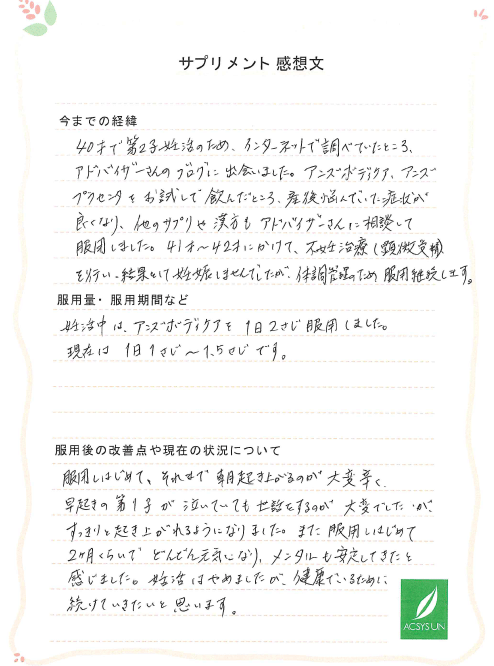 サプリメント 感想文
今までの経緯
40才で第2子妊活のため、インターネットで調べていたところ、
アドバイザーさんのブログに出会いました。アンズボディケア、アンズ
プラセンタをお試しで飲んだところ、産後悩んでいた症状が
良くなり、他のサプリや漢方もアドバイザーさんに相談して
服用しました。41才〜42才にかけて、不妊治療(顕微受精)
を行い、結果として妊娠しませんでしたが、体調管理のため服用継続します。
服用量・服用期間など
妊活中は、アンズボディケアを1日2さじ服用しました。
現在は 1日1さじ〜1.5さじです。
服用後の改善点や現在の状況について
服用しはじめて、それまで朝起き上がるのが大変辛く、
早起きの第1子が泣いていても世話をするのが大変でしたが、
すっきりと起き上がれるようになりました。また服用しはじめて
2ヶ月くらいでどんどん元気になり、メンタルも安定してきたと
感じました。妊活はやめましたが、健康でいるために
続けていきたいと思います。
ACSYSUN